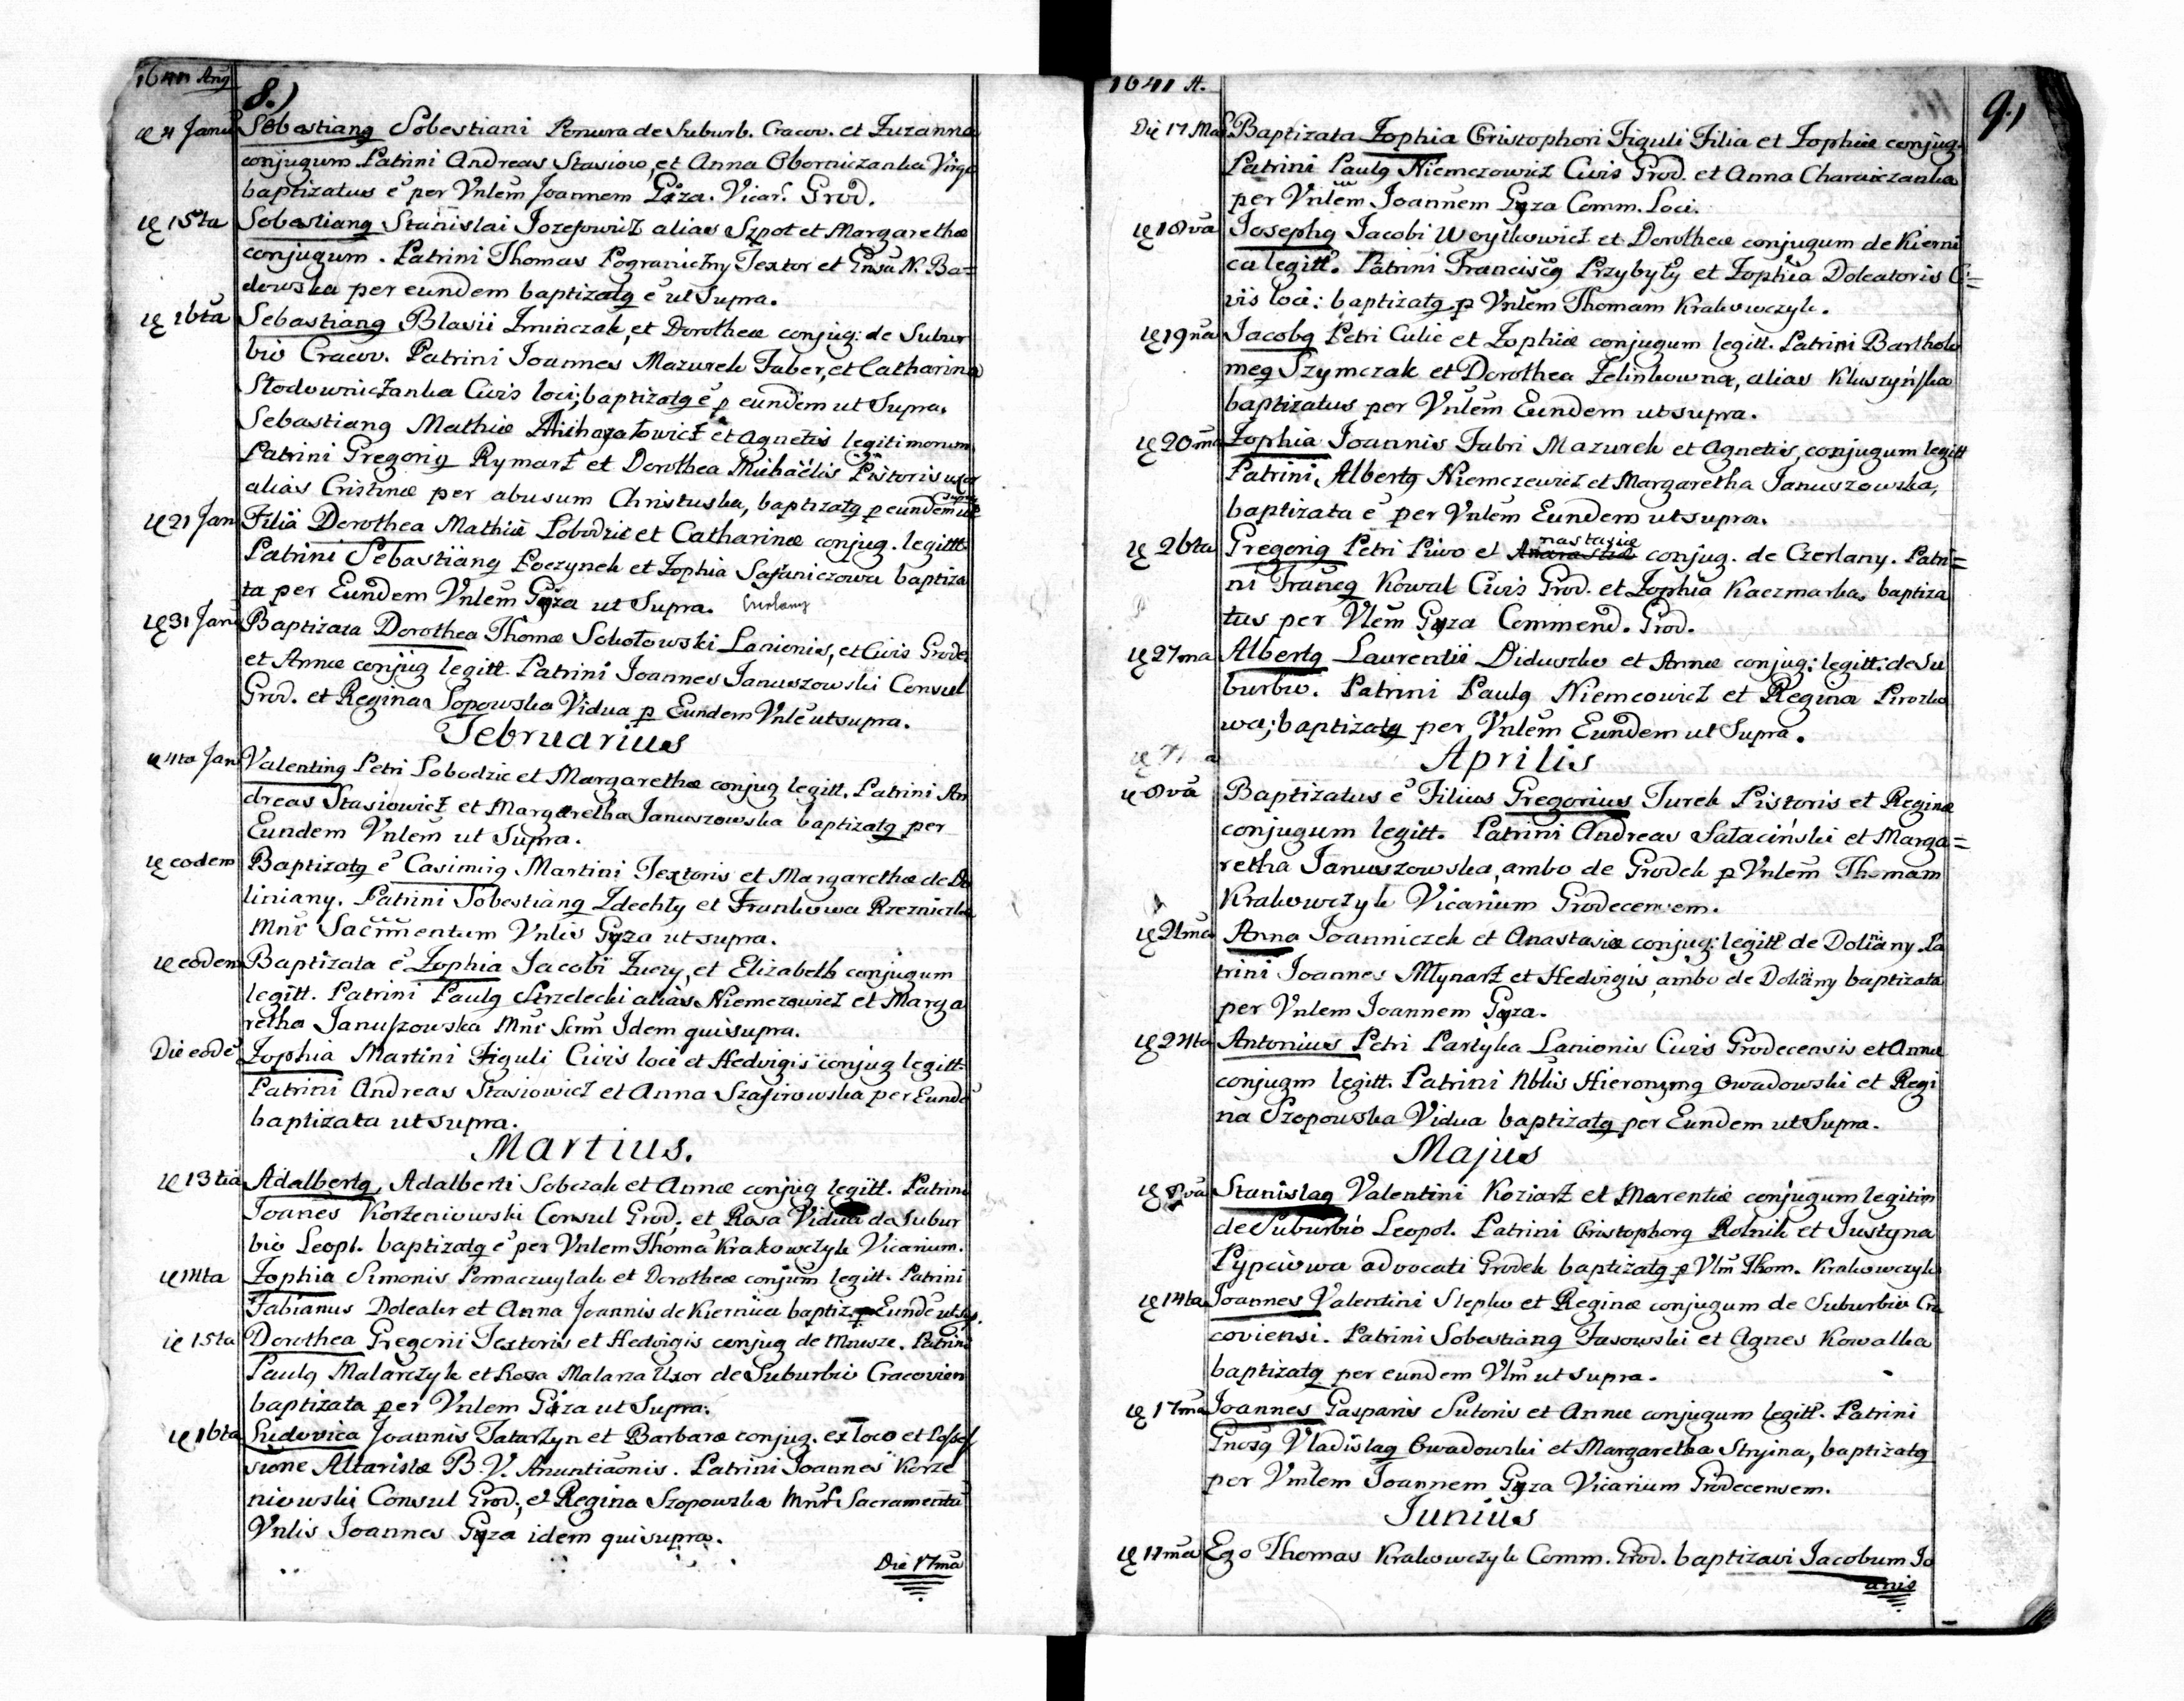 1641 Ang
8.)
4 Janu Sebastianq Sobestiani Ponura de Suburb. Cracov. et Zuzanna
conjugum Patrini Andreas Stasiow, et Anna Oborniczanka Virgo
baptizatus ē per Vnlem Joannem Giza. Vicar. Grod.
15ta Sobestianq Stanislai Jozefowicz alias Szpot et Margarethæ
conjugum. Patrini Thomas Pograniczny Textor et Gnsa N. Ba=
dowska per eundem baptizatq ē ut Supra.
16ta Sebastianq Blasii Zminczak, et Dorotheæ conjug: de Subur
bio Cracov. Patrini Joannes Mazurek Faber, et Catharina
Stodowniczanka Civis loci; baptizatq ē p eundem ut Supra.
Sebastianq Mathiæ et Agnetis legitimorum
Patrini Gregoriq Rymarz et Dorothea Michaëlis Pistoris uxor
alias Cristinæ per abusum Christuska, baptizatq p eundem ut
supra
21 Jan Filia Dorothea Mathiæ Lobodzic et Catharinæ conjug. legittt
Patrini Sebastianq Poczynek et Zophia Safaniczowa baptiza
ta per Eundem Vnlem Gyza ut Supra.
31 Jan Baptizata Dorothea Thomæ Sokołowski Lanionis, et Civis Grode
et Annæ conjug legitt. Patrini Joannes Januszowski Consul
Grod. et Regina Sopowska Vidua p Eundem Vnle ut supra.
Februarius
4ta Jan Valentinq Petri Lobodzic et Margarethæ conjug legitt. Patrini An
dreas Stasiowicz et Margaretha Januszowska baptizatq per
Eundem Vnlem ut Supra.
eodem Baptizatq ē Casimirq Martini Textoris et Margarethæ de Do
liniany. Patrini Sobestianq Zdechły et Frankowa Rzezniczka
Mnr Sacrmentum Vnlis Gyza ut supra.
eodem Baptizata ē Zophia Jacobi Zuczy, et Elizabeth conjugum
legitt. Patrini Paulq Strzelecki alias Niemczowicz et Marga
retha Januszowska Mnr Scrm Idem qui supra.
Die eode Zophia Martini Figuli Civis loci et Hedvigis conjug legitt.
Patrini Andreas Stasiowicz et Anna Szafirowska per Eunde
baptizata ut supra.
Martius.
13tia Adalbertq, Adalberti Sobczak et Annæ conjug legitt. Patrini
Joanes Korzeniowski Consul Grod, et Rosa Vidua de Subur
bio Leopl. baptizatq ē per Vnlem Thoma Krakowczyk Vicarium.
14ta Zophia Simonis Pomaczuylak et Dorotheæ conjum legitt. Patrini
Fabianus Doleator et Anna Joannis de Kiernica baptiz p Eunde ut su.
15ta Dorothea Gregorii Textoris et Hedvigis conjug de Mnwsze. Patrini
Paulq Malarczyk et Rosa Malarza Uxor de Suburbio Cracovien
baptizata per Vnlem Giza ut Supra.
16ta Ludovica Joannis Tatarzyn et Barbaræ conjug. ex loco et Posses
sione Altaristæ B. V. Anuntiaonis. Patrini Joannes Korze
niowski Consul Grod, et Regina Szopowska Mnr Sacramentu
Vnlis Joannes Gyza idem qui supra.
Die 17ma
1641 A.
9.)
Die 17 Ma Baptizata Zophia Christophori Figuli Filia et Zophiæ conjug.
Patrini Paulq Niemczowicz Civis Grod. et Anna Charaiczanka
per Vnlem Joannem Gyza Comm. Loci.
18va Josephq Jacobi Woytkowicz et Dorotheæ conjugum de Kierni
ca legitt. Patrini Franciscq Przybyły et Zophia Doleatoris Ci=
vis loci: baptizatq p Vnlem Thomam Krakowczyk.
19na Jacobq Petri Culic et Zophiæ conjugum legitt. Patrini Bartholo
meq Szymczak et Dorothea Zelinkowna, alias Kluszyńska
baptizatus per Vnlem Eundem ut supra.
20ma Zophia Joannis Fabri Mazurek et Agnetis, conjugum legitt
Patrini, Albertq Niemczewicz et Margaretha Januszowska,
baptizata ē per Vnlem Eundem ut supra.
26ta Gregoriq Petri Piwo et Anastasiæ conjug. de Czerlany. Patri=
ni Francq Kowal Civis Grod. et Zophia Kaczmarka, baptiza
tus per Vlem Gyza Commend. Grod.
27ma Albertq Laurentii Diduszko et Annæ conjug: legitt: de Su
burbio. Patrini Paulq Niemcowicz et Regina Pirozko
wa; baptizatq per Vnlem Eundem ut Supra.
Aprilis
8va Baptizatus ē Filius Gregorius Turek Pistoris et Reginæ
conjugum legitt. Patrini Andreas Sałaciński et Marga=
retha Januszowska, ambo de Grodek p Vnlem Thomam
Krakowczyk Vicarium Grodecensem.
21ma Anna Joanniczek et Anastasiæ conjug: legitt de Doliany. Pa
trini Joannes Młynarz et Hedvigis, ambo de Doliany baptizata
per Vnlem Joannem Gyza.
24ta Antonius Petri Partyka Lanionis Civis Grodecensis et Annæ
conjugm legitt. Patrini Nblis Hieronymq Owadowski et Regi
na Szopowska Vidua baptizatq per Eundem ut Supra.
Majus
8va Stanislaq Valentini Koziarz et Marentiæ conjugum legitim
de Suburbio Leopol. Patrini Cristophorq Rolnik et Justyna
Pypciowa advocati Grodek baptizatq p Vlm Thom. Krakowczyk
14ta Joannes Valentini Slepko et Reginæ conjugum de Suburbio Cra
coviensi. Patrini Sobestianq Fasowski et Agnes Kowalka
baptizatq per eundem Vlm ut supra.
17ma Joannes Gasparis Sutoris et Annæ conjugum legitt. Patrini
Gnosq Vladislaq Owadowski et Margaretha Stryina, baptizatq
per Vnlem Joannem Gyza Vicarium Grodecensem.
Junius
11ma Ego Thomas Krakowczyk Comm. Grod. baptizavi Jacobum Jo
anis